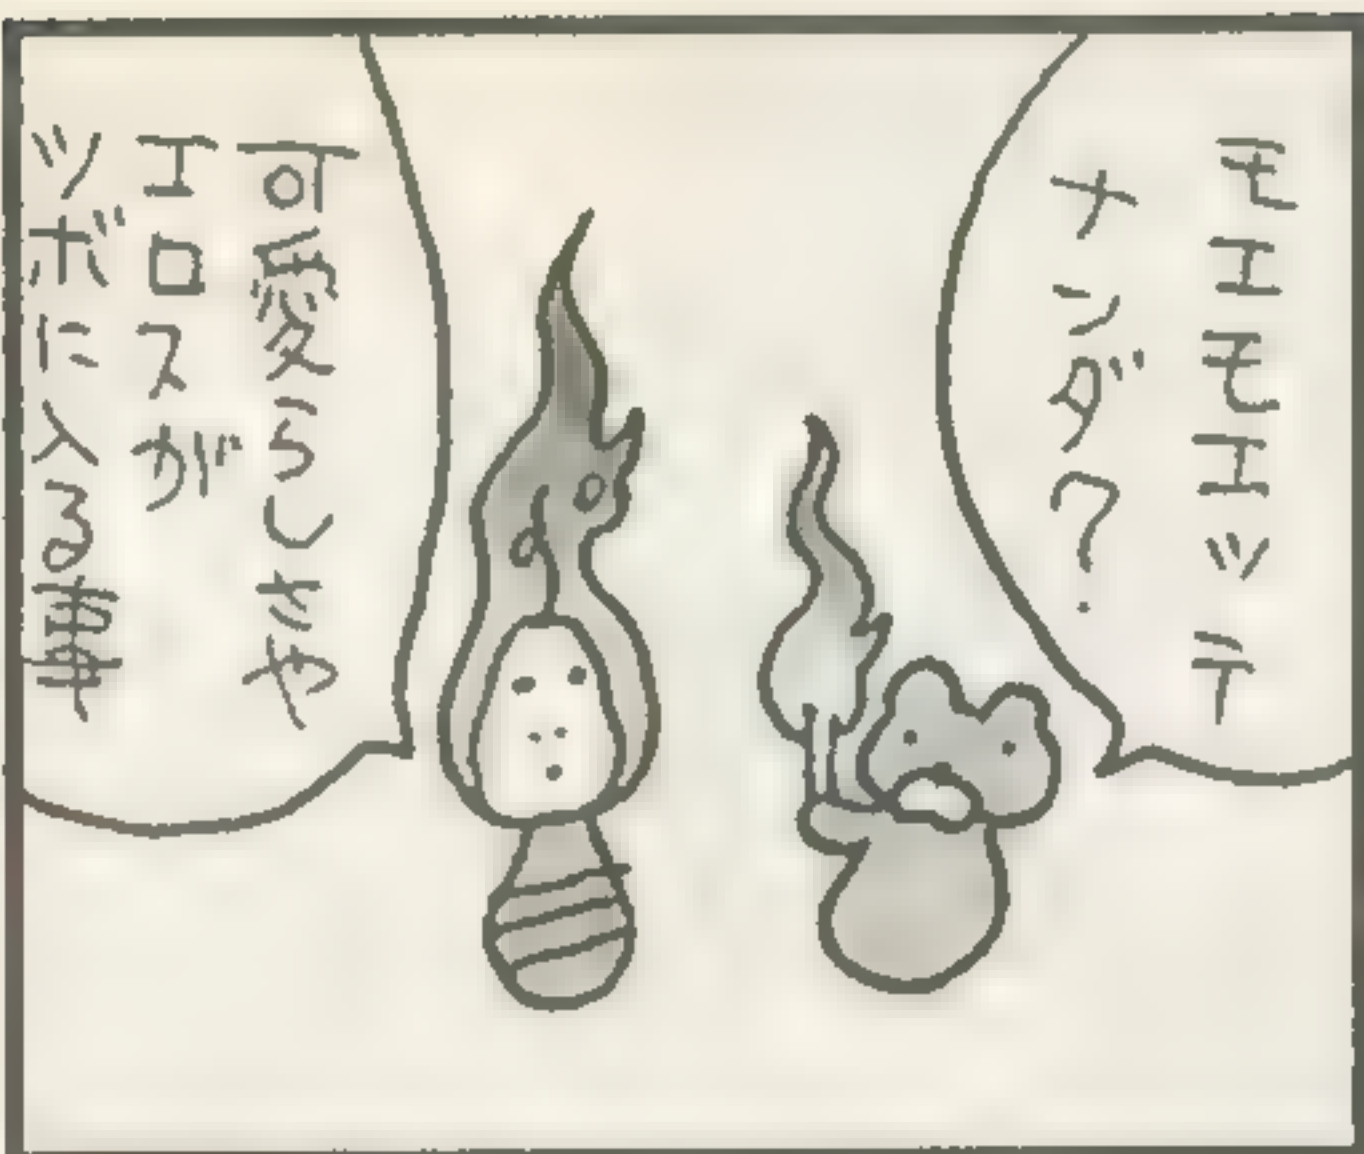 モエモエッテ
ナンダ？
可愛らしさや
エロスが
ツボに入る事